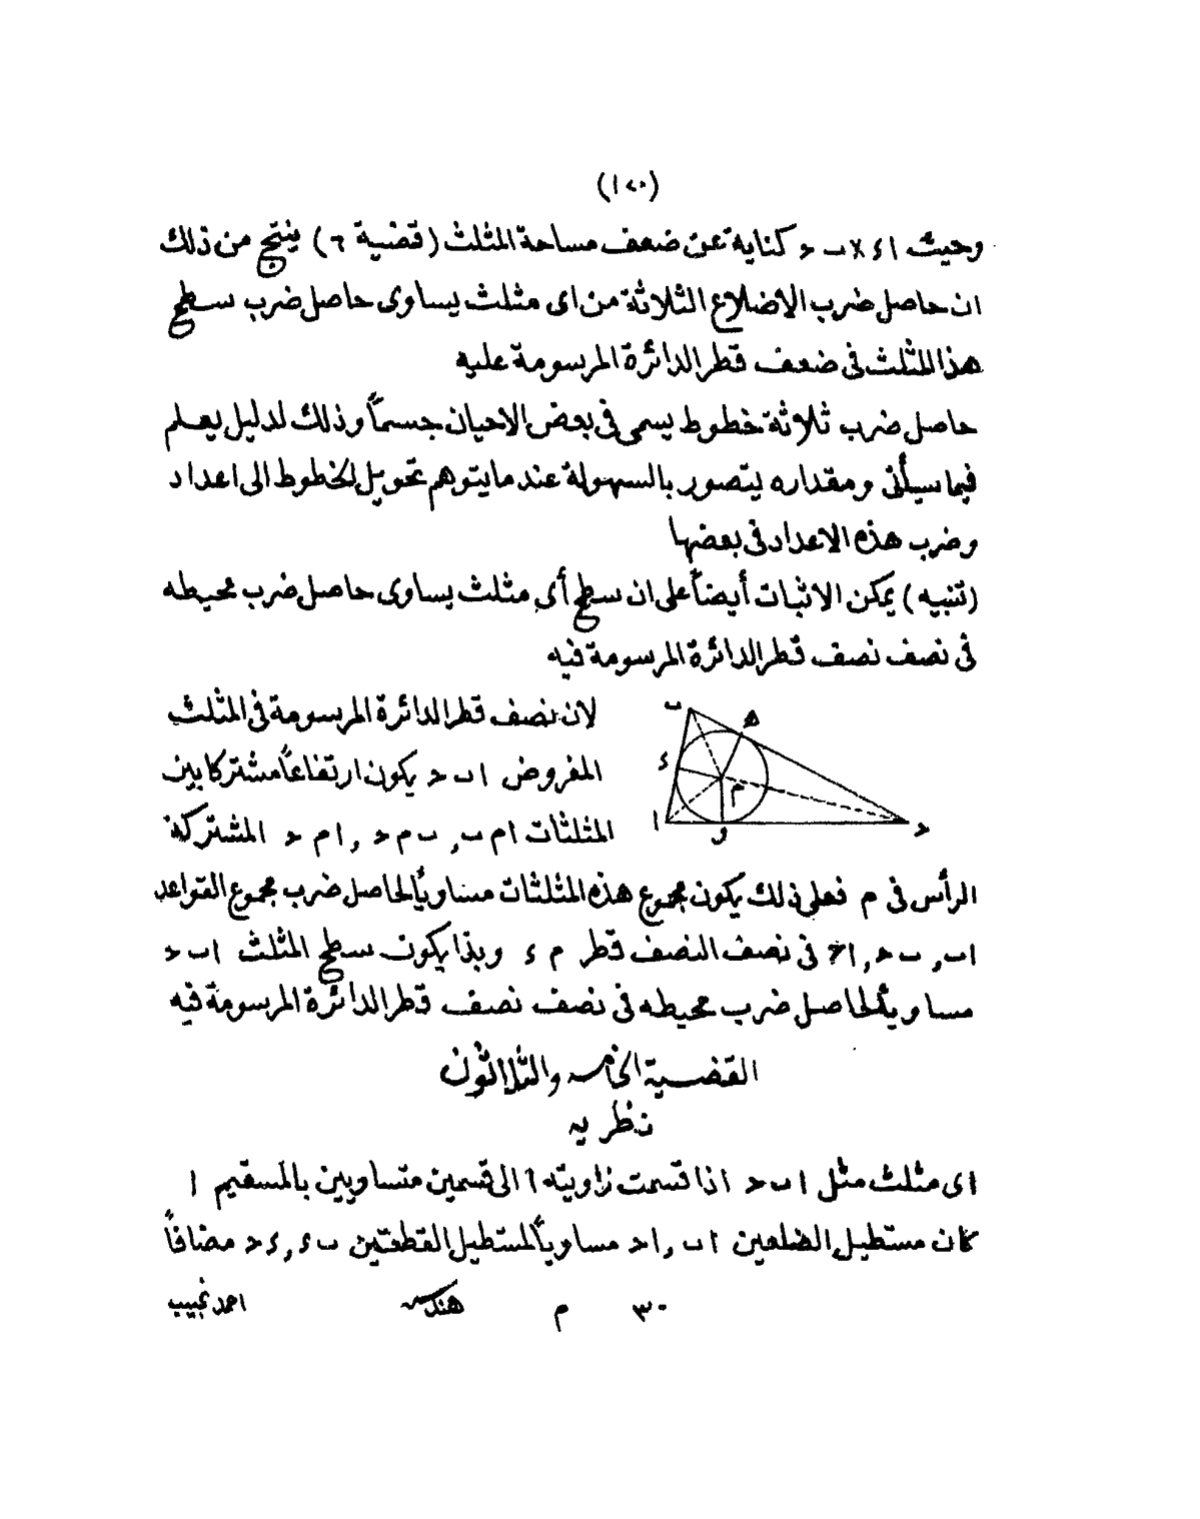 (١٧٠)
وحيث ا ء × ب ح كناية عن ضعف مساحة المثلث (قضية ٦) ينتج من ذلك
ان حاصل ضرب الاضلاع الثلاثة من اى مثلث يساوى حاصل ضرب سطح
هذا المثلث فى ضعف قطر الدائرة المرسومة عليه
حاصل ضرب ثلاثة خطوط يسمى فى بعض الاحيان جسماً وذلك لدليل يعلم
فيما سيأتى ومقداره يتصور بالسهولة عند ما يتوهم تحويل الخطوط الى اعداد
وضرب هذه الاعداد فى بعضها
(تنبيه) يمكن الاثبات أيضاً على ان سطح أى مثلث يساوى حاصل ضرب محيطه
فى نصف نصف قطر الدائرة المرسومة فيه
لان نصف قطر الدائرة المرسومة فى المثلث
المفروض ا ب ح يكون ارتفاعاً مشتركا بين
المثلثات ا م ب , ب م ح , ا م ح المشتركة
ب
ه
ء
م
ا
و
ح
الرأس فى م فعلى ذلك يكون مجموع هذه المثلثات مساوياً لحاصل ضرب مجموع القواعد
ا ب , ب ح , ا ح فى نصف النصف قطر م ء وبذا يكون سطح المثلث ا ب ح
مساوياً لحاصل ضرب محيطه فى نصف نصف قطر الدائرة المرسومة فيه
القضية الخامسه والثلاثون
نظريه
اى مثلث مثل ا ب ح اذا قسمت زاويته ا الى قسمين متساويين بالمسقيم ا
كان مستطيل الضلعين ا ب , ا ح مساوياً لمستطيل القطعتين ب ء , ء ح مضافاً
٣٠ م هندسه احمد نجيب